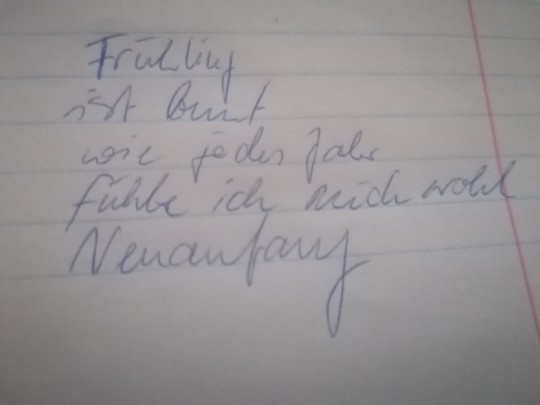 Frühling
ist bunt
wie jedes Jahr
fühle ich mich wohl
Neuanfang